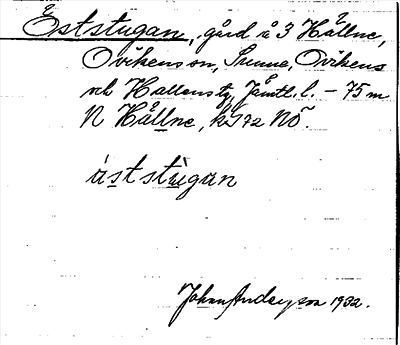 Eststugan, gård å 3 Hållne,
Ovikens sn, Sunne, Ovikens
och Hallens tg, Jämtl. l. – 75 m
N Hållne, k372 NÖ
àststùgan
Johan Anderson 1932.